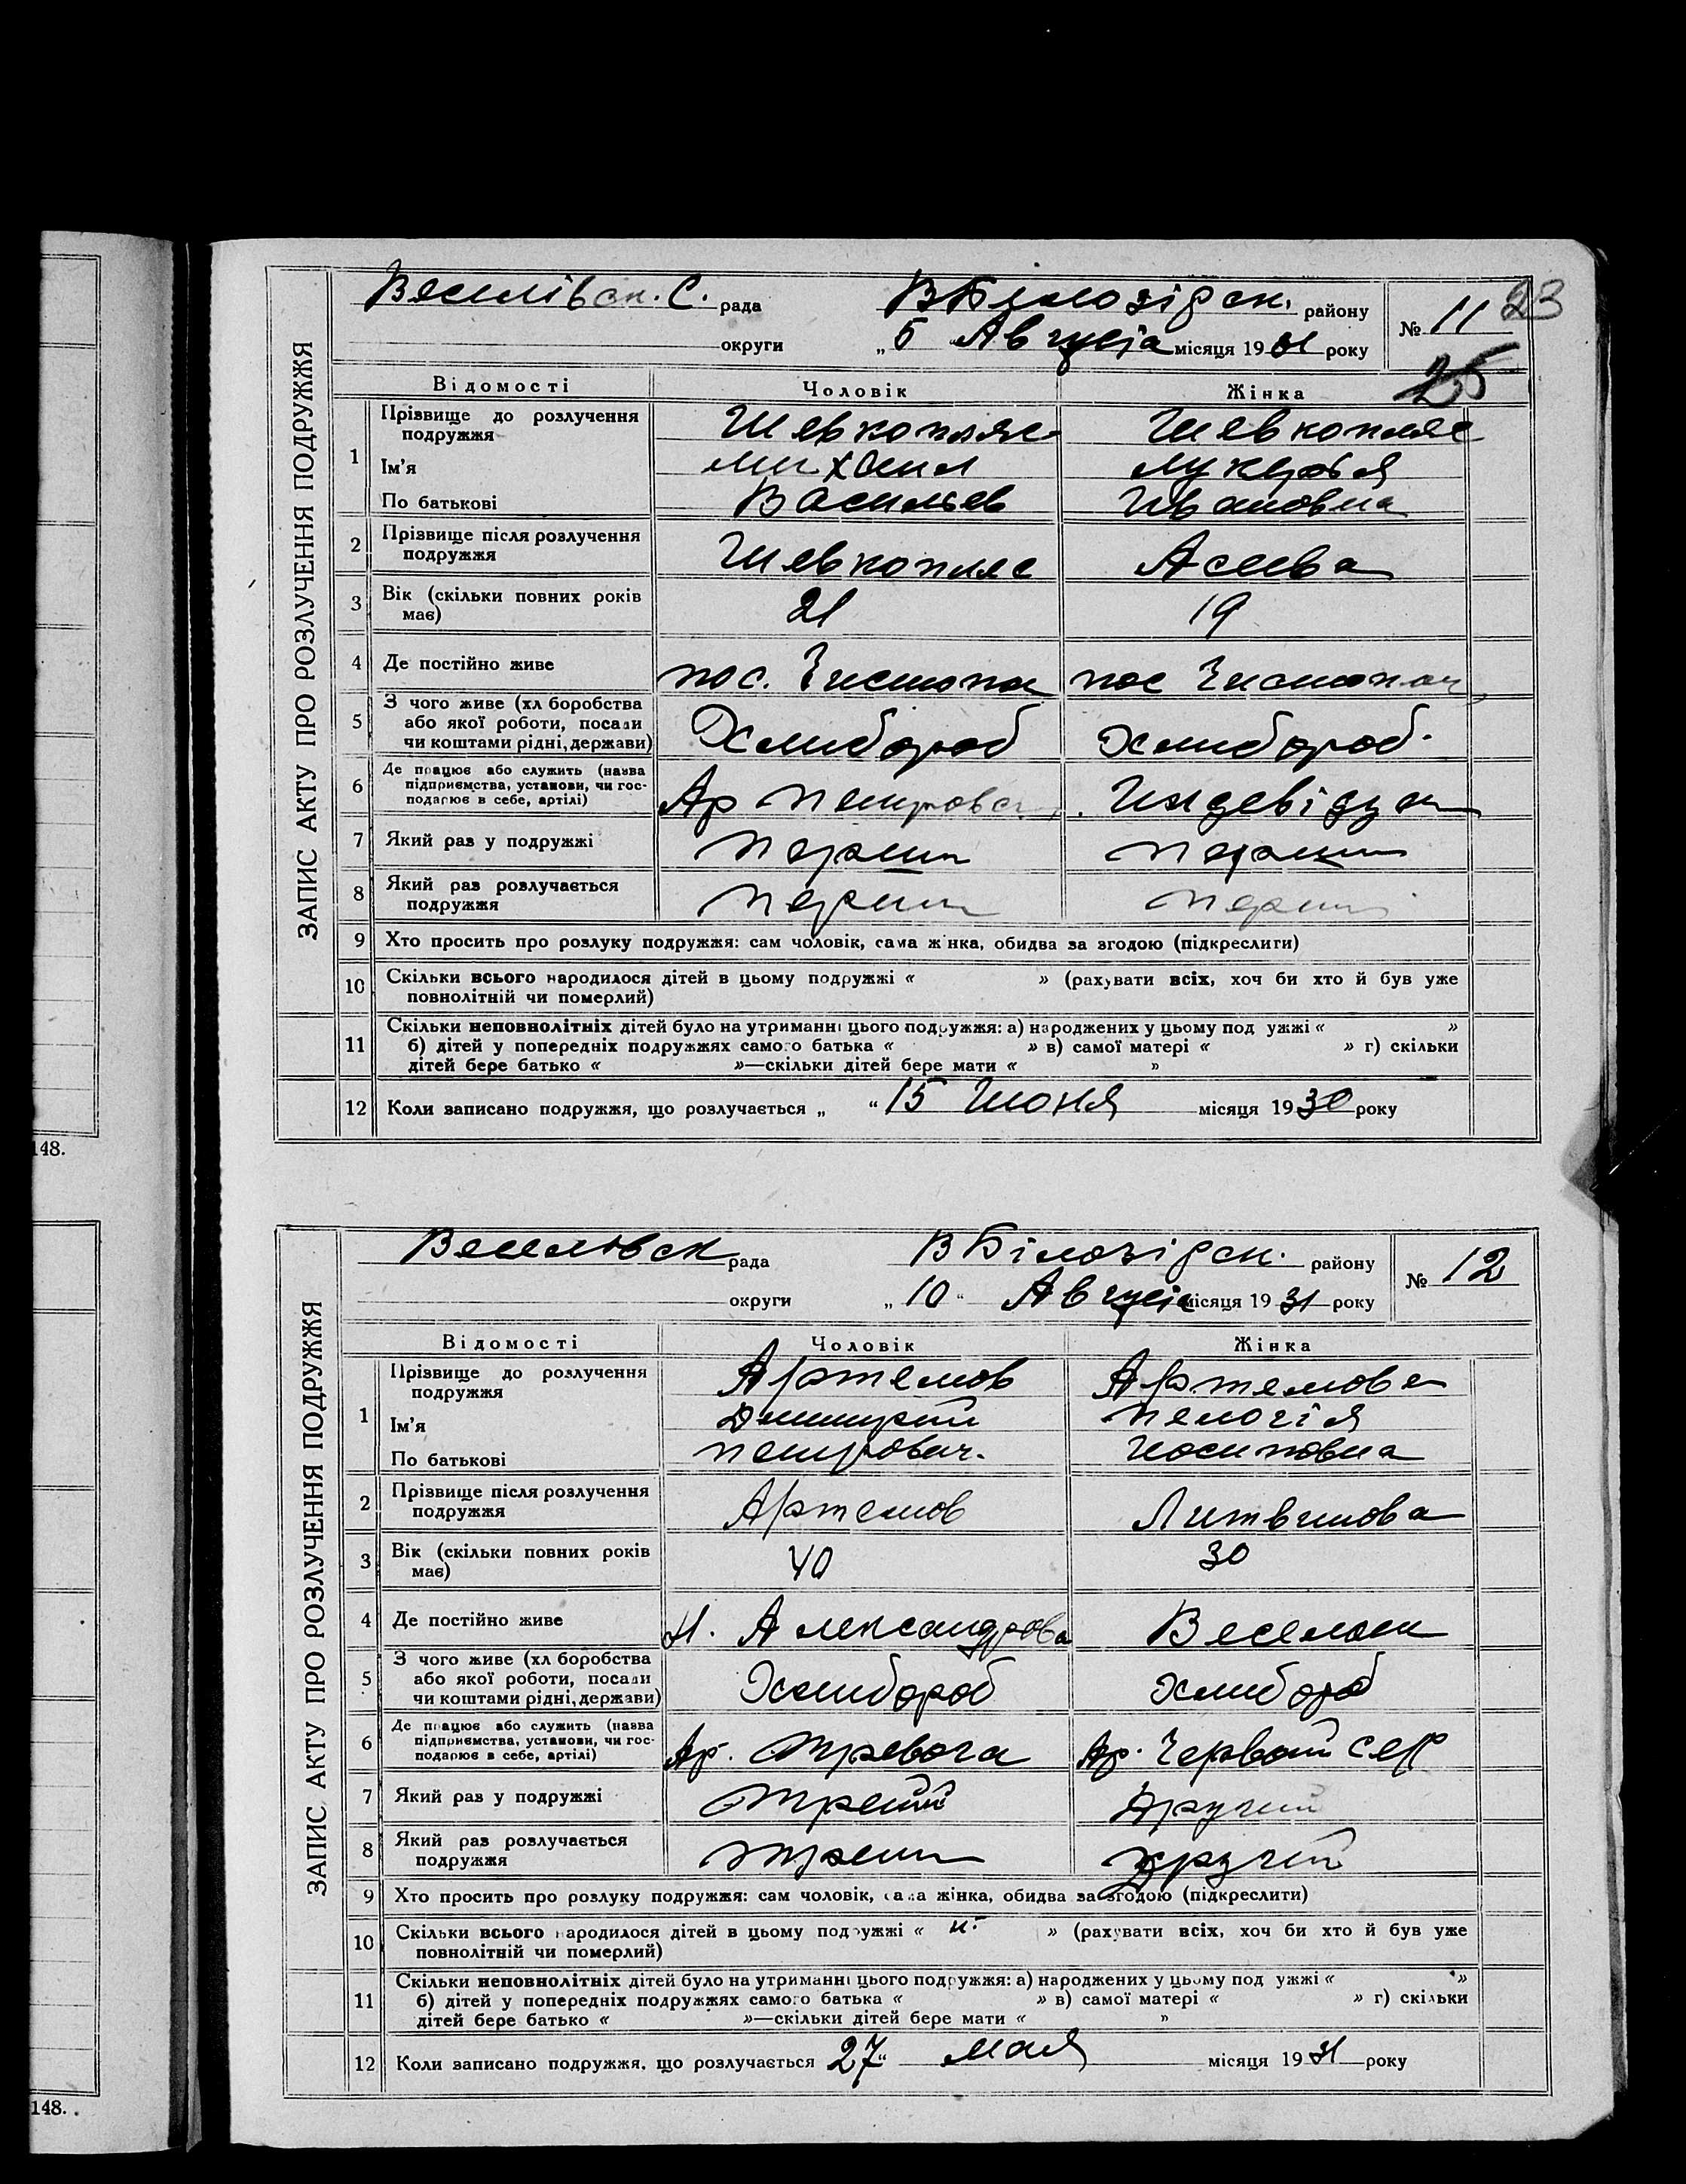 ЗАПИС АКТУ ПРО РОЗЛУЧЕННЯ ПОДРУЖЖЯ
Веселівск. С. рада ВБілозірск. району № 11 23
округи „ 5 " Августа місяця 1931 року
25
Відомості Чоловік Жінка
1 Прізвище до розлучення подружжя Шевкопляс Шевкопляс
Ім'я Михаил Лукерія
По батькові Васильев Ивановна
2 Прізвище після розлучення подружжя Шевкопляс
3 Вік (скільки повних років має) 21 19
4 Де постійно живе пос. пос
5 З чого живе (хліборобства або якої роботи, посади чи коштами рідні, держави) Хлибороб Хлибороб.
6 Де працює або служить (назва підприємства, установи, чи господарює в себе, артілі) Ар Индевідуал
7 Який раз у подружжі Перший Перший
8 Який раз розлучається подружжя Перший Перший
9 Хто просить про розлуку подружжя: сам чоловік, сама жінка, обидва за згодою (підкреслити)
10 Скільки всього народилося дітей в цьому подружжі « » (рахувати всіх, хоч би хто й був уже
повнолітній чи померлий)
11 Скільки неповнолітніх дітей було на утриманні цього подружжя: а) народжених у цьому подружжі « »
б) дітей у попередніх подружжях самого батька « » в) самої матері « » г) скільки
дітей бере батько « »—скільки дітей бере мати « »
12 Коли записано подружжя, що розлучається „ " 15 Июня місяця 1930 року
148.
ЗАПИС АКТУ ПРО РОЗЛУЧЕННЯ ПОДРУЖЖЯ
Веселовск рада ВБілозірск. району № 12
округи „ 10 " Августа місяця 1931 року
Відомості Чоловік Жінка
1 Прізвище до розлучення подружжя Артемов Артемова
Ім'я Дмитрий Пелогія
По батькові Петрович. Иосиповна
2 Прізвище після розлучення подружжя Артемов Литвинова
3 Вік (скільки повних років має) 40 30
4 Де постійно живе Н. Александровка
5 З чого живе (хліборобства або якої роботи, посади чи коштами рідні, держави) Хлибороб Хлибороб
6 Де працює або служить (назва підприємства, установи, чи господарює в себе, артілі) Ар. Тревога Ар. Червоний Сер
7 Який раз у подружжі Третий Другий
8 Який раз розлучається подружжя Трети Другий
9 Хто просить про розлуку подружжя: сам чоловік, сама жінка, обидва за згодою (підкреслити)
10 Скільки всього народилося дітей в цьому подружжі « н. » (рахувати всіх, хоч би хто й був уже
повнолітній чи померлий)
11 Скільки неповнолітніх дітей було на утриманні цього подружжя: а) народжених у цьому подружжі « »
б) дітей у попередніх подружжях самого батька « » в) самої матері « » г) скільки
дітей бере батько « »—скільки дітей бере мати « »
12 Коли записано подружжя, що розлучається 27 " мая місяця 1931 року
148.